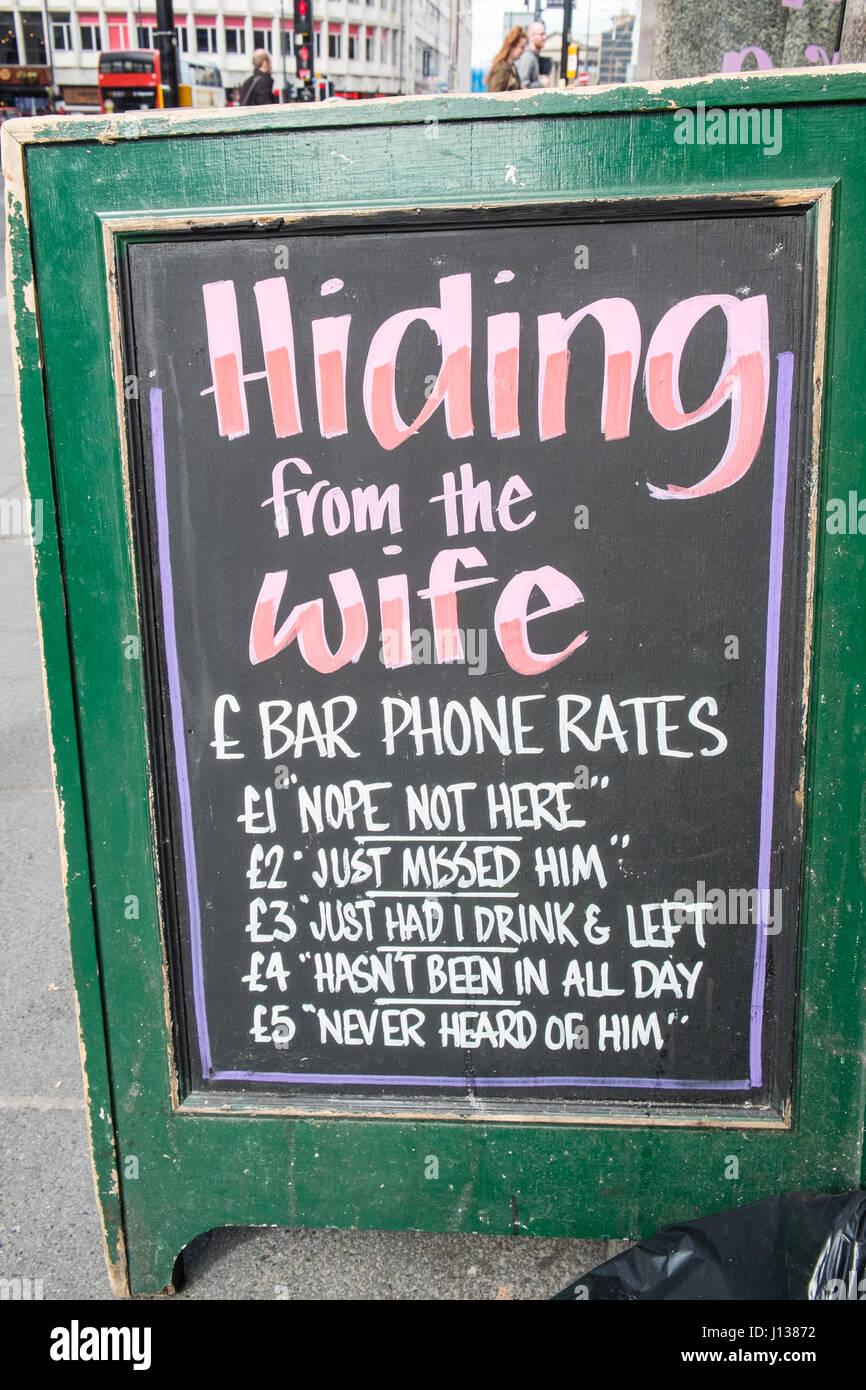 Hiding
from the
wife
£ BAR PHONE RATES
£1 "NOPE NOT HERE"
£2 "JUST MISSED HIM"
£3 "JUST HAD 1 DRINK & LEFT
£4 "HASN'T BEEN IN ALL DAY
£5 "NEVER HEARD OF HIM"
alamy
Image ID: J13872
www.alamy.com